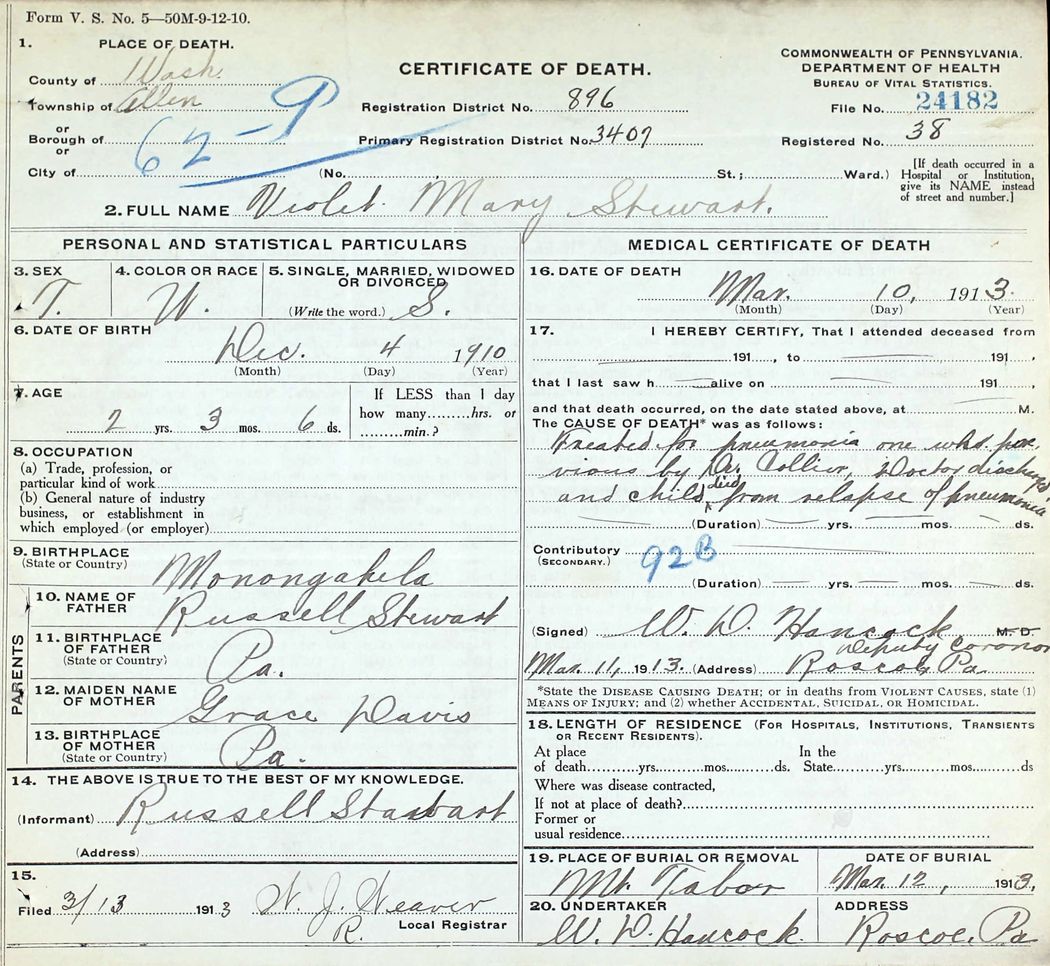 Form V. S. No. 5—50M-9-12-10.
1. PLACE OF DEATH.
County of Wash.
Township of Allen
or
Borough of
or
City of
62-9
CERTIFICATE OF DEATH.
Registration District No. 896
Primary Registration District No. 3407
(No. , St.; Ward.)
COMMONWEALTH OF PENNSYLVANIA.
DEPARTMENT OF HEALTH
BUREAU OF VITAL STATISTICS.
File No. 24182
Registered No. 38
[If death occurred in a
Hospital or Institution,
give its NAME instead
of street and number.]
2. FULL NAME Violet Mary Stewart.
PERSONAL AND STATISTICAL PARTICULARS
3. SEX
4. COLOR OR RACE
5. SINGLE, MARRIED, WIDOWED
OR DIVORCED
(Write the word.) S.
W.
6. DATE OF BIRTH
Dec. 4 1910
(Month) (Day) (Year)
7. AGE
2 yrs. 3 mos. 6 ds.
If LESS than 1 day
how many hrs. or
min.?
8. OCCUPATION
(a) Trade, profession, or
particular kind of work
(b) General nature of industry
business, or establishment in
which employed (or employer)
9. BIRTHPLACE
(State or Country)
Monongahela
PARENTS
10. NAME OF
FATHER
Russell Stewart
11. BIRTHPLACE
OF FATHER
(State or Country)
Pa.
12. MAIDEN NAME
OF MOTHER
Grace Davis
13. BIRTHPLACE
OF MOTHER
(State or Country)
Pa.
14. THE ABOVE IS TRUE TO THE BEST OF MY KNOWLEDGE.
(Informant) Russell
(Address)
15.
Filed 3/13 1913 W. J. Weaver
R. Local Registrar
MEDICAL CERTIFICATE OF DEATH
16. DATE OF DEATH
Mar. 10, 1913.
(Month) (Day) (Year)
17. I HEREBY CERTIFY, That I attended deceased from
191 , to 191 ,
that I last saw h alive on 191 ,
and that death occurred, on the date stated above, at M.
The CAUSE OF DEATH* was as follows:
Treated for pneumonia one pre
vious by Dr. Collier, Doctor discharged
and child died from relapse of pneumonia
(Duration) yrs. mos. ds.
Contributory 92B
(SECONDARY.)
(Duration) yrs. mos. ds.
(Signed) W. D. Hancock M. D.
Deputy Coronor
Mar. 11, 1913. (Address) Roscoe, Pa
*State the DISEASE CAUSING DEATH; or in deaths from VIOLENT CAUSES, state (1)
MEANS OF INJURY; and (2) whether ACCIDENTAL, SUICIDAL, OR HOMICIDAL.
18. LENGTH OF RESIDENCE (FOR HOSPITALS, INSTITUTIONS, TRANSIENTS
OR RECENT RESIDENTS).
At place
of death yrs. mos. ds.
In the
State yrs. mos. ds
Where was disease contracted,
If not at place of death?
Former or
usual residence
19. PLACE OF BURIAL OR REMOVAL
Mt. Tabor
DATE OF BURIAL
Mar. 12, 1913,
20. UNDERTAKER
W. D. Hancock.
ADDRESS
Roscoe, Pa